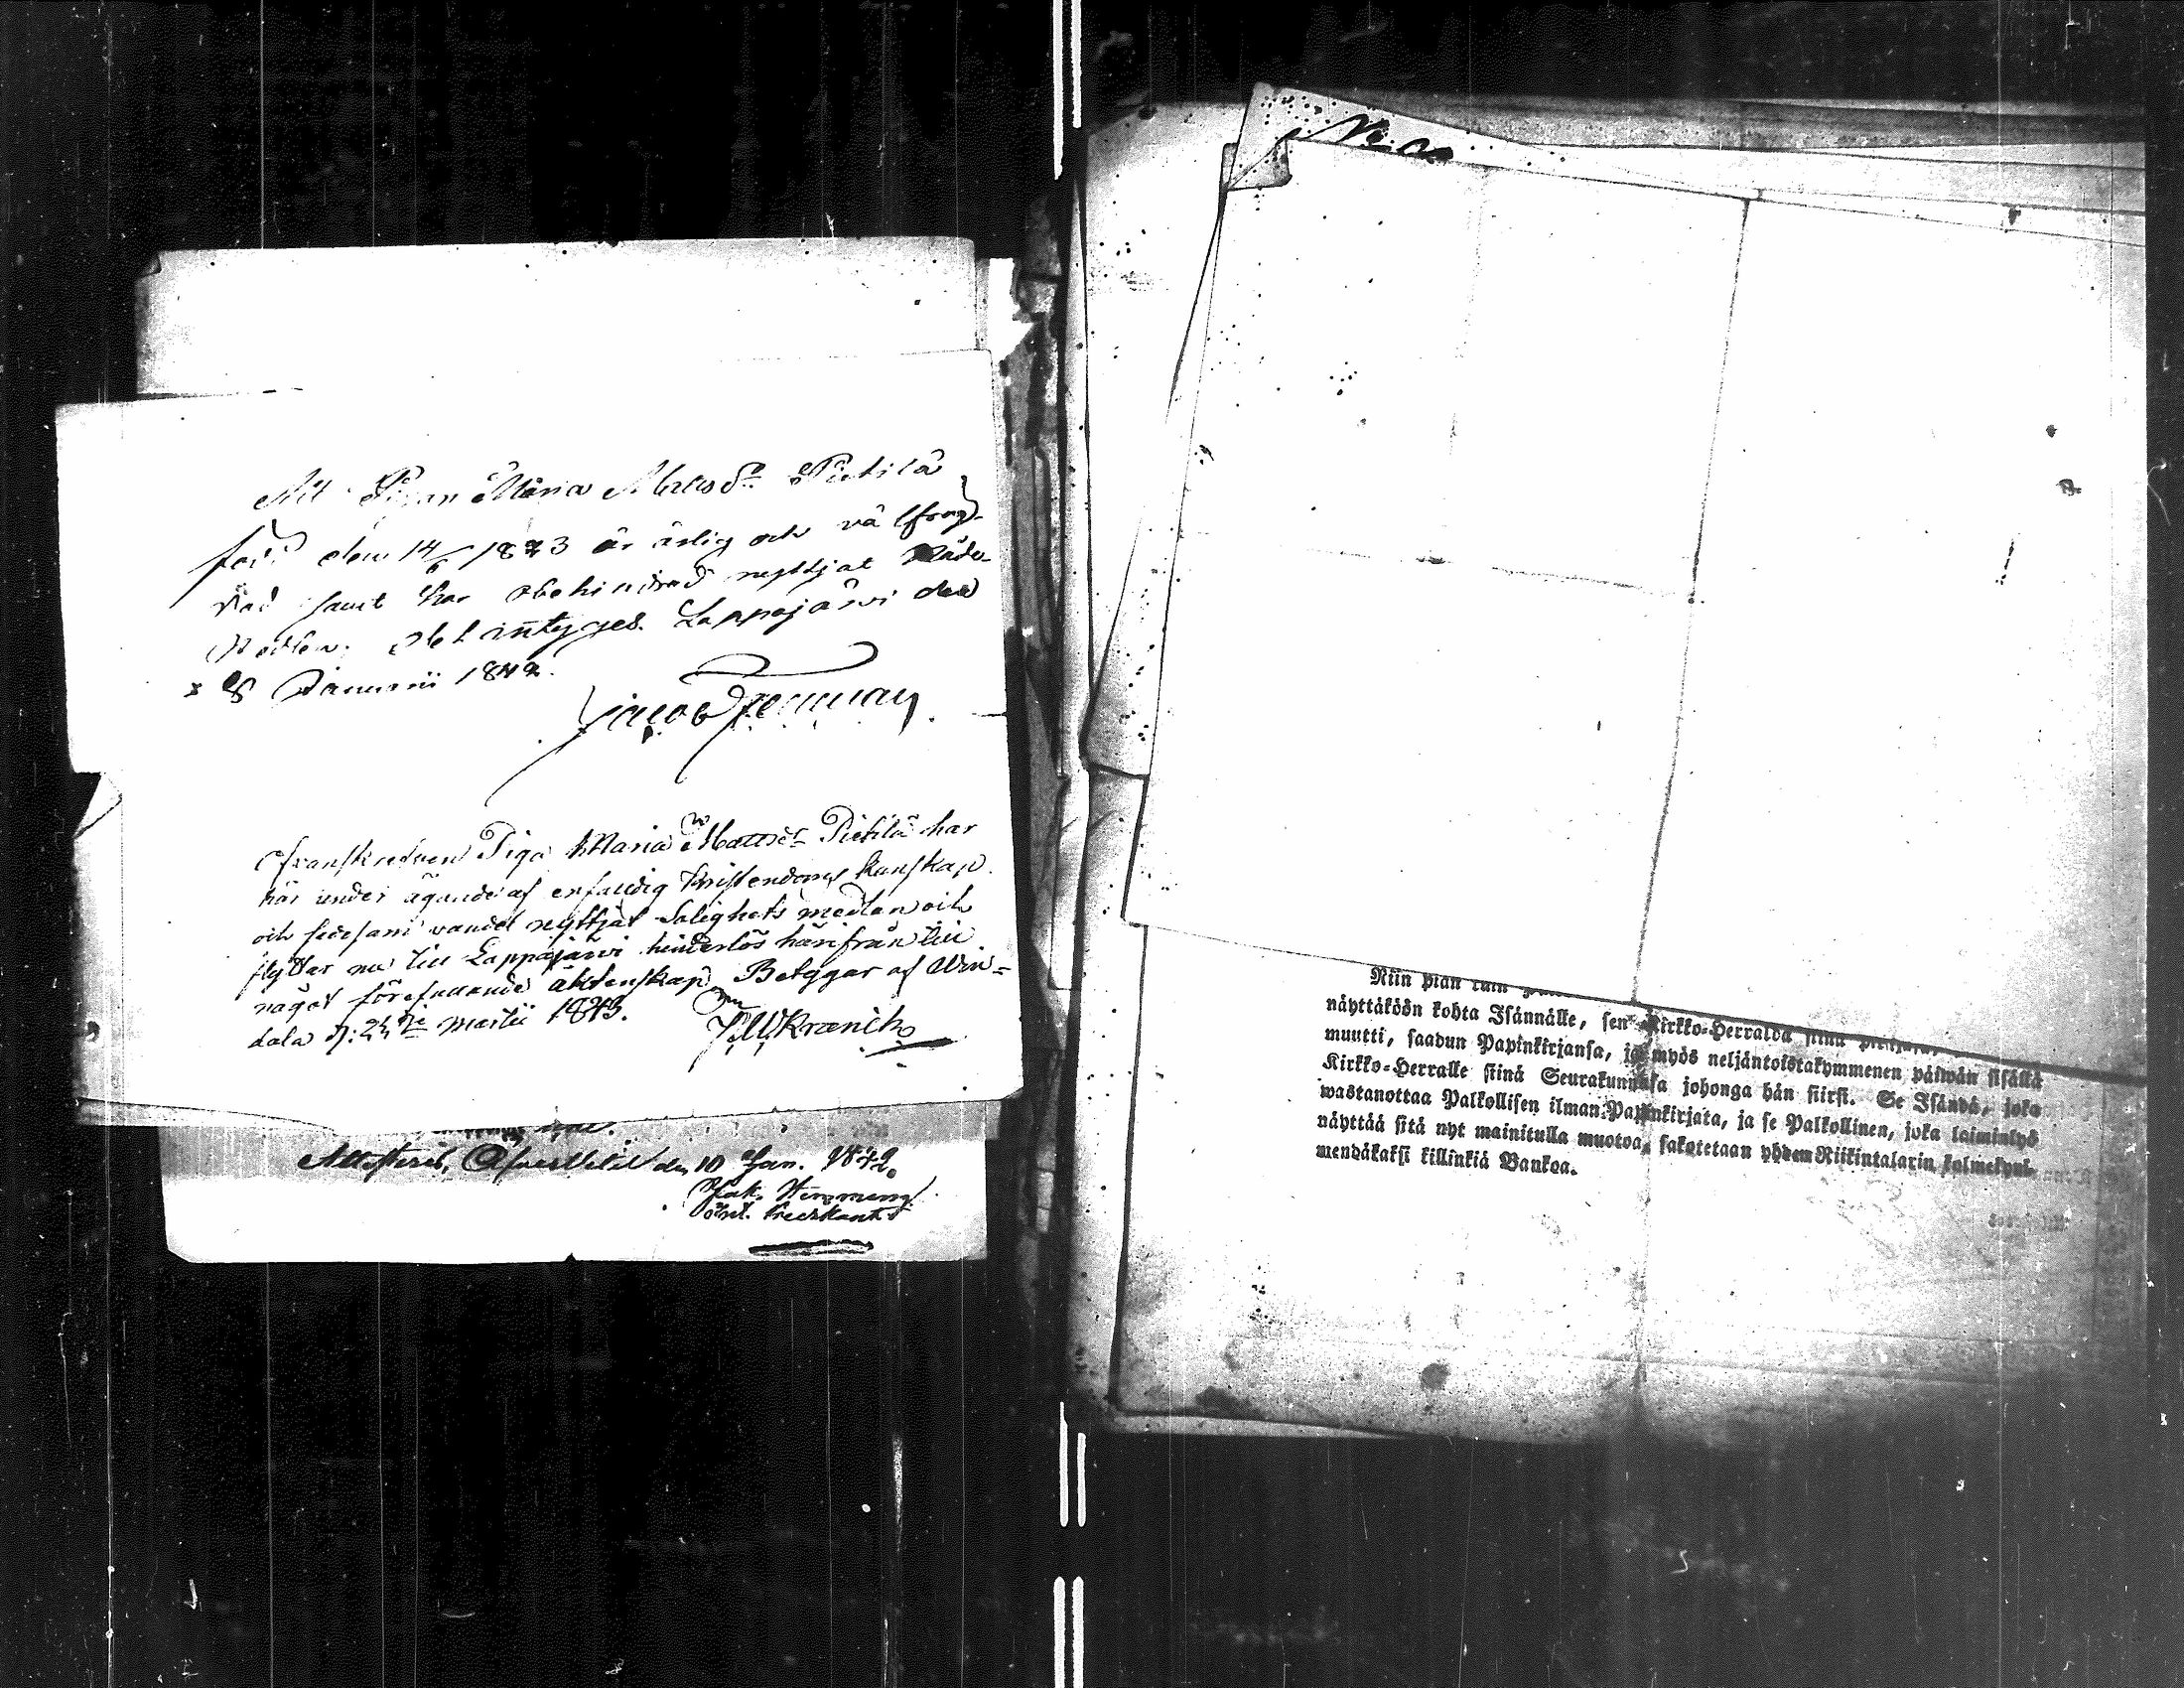 Att Pigan Maria Matsdr Pietilä
född den 14/6 1823 är ärlig och väl frag-
dad samt har obehindrad nyttjat Nåde
Medlen; det intyges. Lappajärvi den
8 Januarii 1842.
Jacob
Ofvanskrefven Piga Maria Mattsdr Pietilä har
här under ägande af enfaldig kristendoms kunskap
och sedesam vandel nyttjat Salighets medlen och
flyttar nu till Lappajärvi hinderlös härifrån till
något förefallande äktenskap. Betygar af Win=
dala d: 24de Martii 1843.
Kranck
Attesterar, den 10 Jan. 1842.
Jak.
Niin pian kuin
näyttäköön kohta Isännälle, sen Kirkko-Herralda siinä
muutti, saadun Papinkirjansa, ja myös neljäntoistakymmenen päiwän sisällä
Kirkko-Herralle siinä Seurakunnasa johonga hän siirsi. Se Isändä, joka
wastanottaa Palkollisen ilman Papinkirjata, ja se Palkollinen, joka laiminlyö
näyttää sitä nyt mainitulla muotoa, sakotetaan yhdem Riikintalarin kolmekym-
mendäkaksi killinkiä Bankoa.